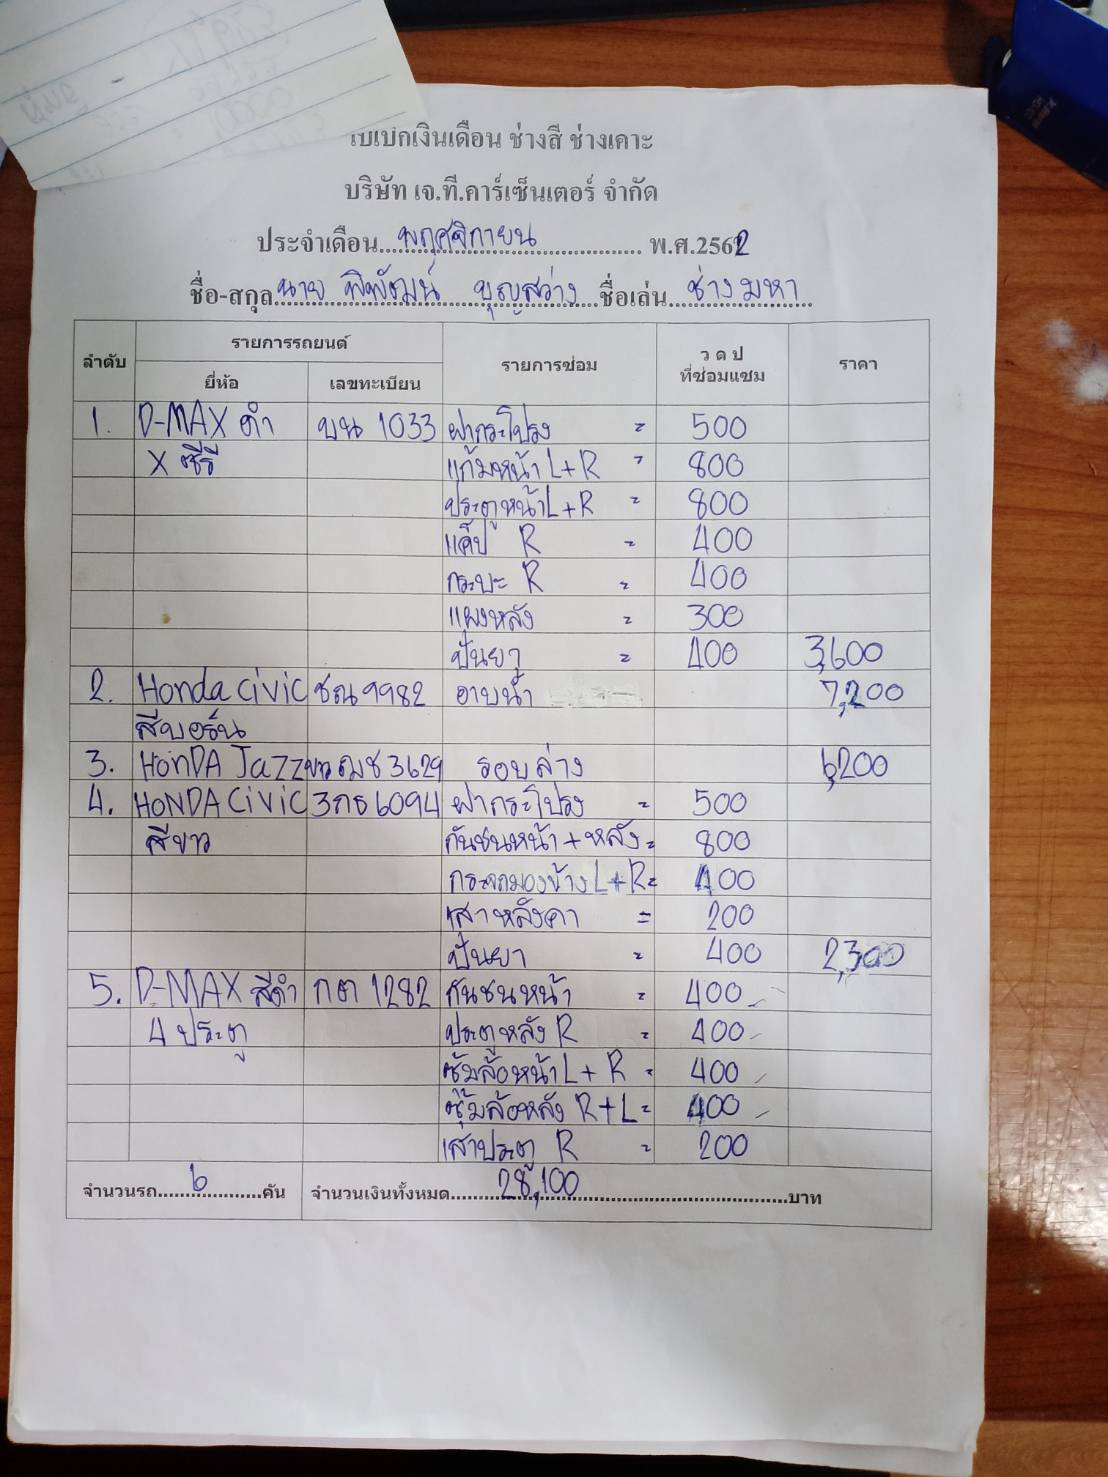 ใบเบิกเงินเดือน ช่างสี ช่างเคาะ
บริษัท เจ.ที.คาร์เซ็นเตอร์ จำกัด
ประจำเดือน...พฤศจิกายน... พ.ศ.2562
ชื่อ-สกุล นาย พิพัฒน์ บุญสว่าง ชื่อเล่น ช่างมหา
ลำดับ รายการรถยนต์ รายการซ่อม ว ด ป ที่ซ่อมแซม ราคา
ยี่ห้อ เลขทะเบียน
1. D-MAX ดำ บน 1033 ฝากระโปรง = 500
X ซีรี แก้มหน้า L+R = 800
ประตูหน้า L+R = 800
แค็ป R = 400
กระบะ R = 400
แผงหลัง = 300
ปั่นยา = 400 3,600
2. Honda civic ชณ 9982 อาบน้ำ 7,200
สีบอร์น
3. HonDA Jazz ขาว ฌช 3629 รอบล่าง 6,200
4. HONDA Civic 3กธ 6094 ฝากระโปรง = 500
สีขาว กันชนหน้า + หลัง = 800
กระจกมองข้าง L+R = 400
เสาหลังคา = 200
ปั่นยา = 400 2,300
5. D-MAX สีดำ กต 1282 กันชนหน้า = 400
4 ประตู ประตูหลัง R = 400
ซุ้มล้อหน้า L+R = 400
ซุ้มล้อหลัง R+L = 400
เสาประตู R = 200
จำนวนรถ...6...คัน จำนวนเงินทั้งหมด...28,100...บาท